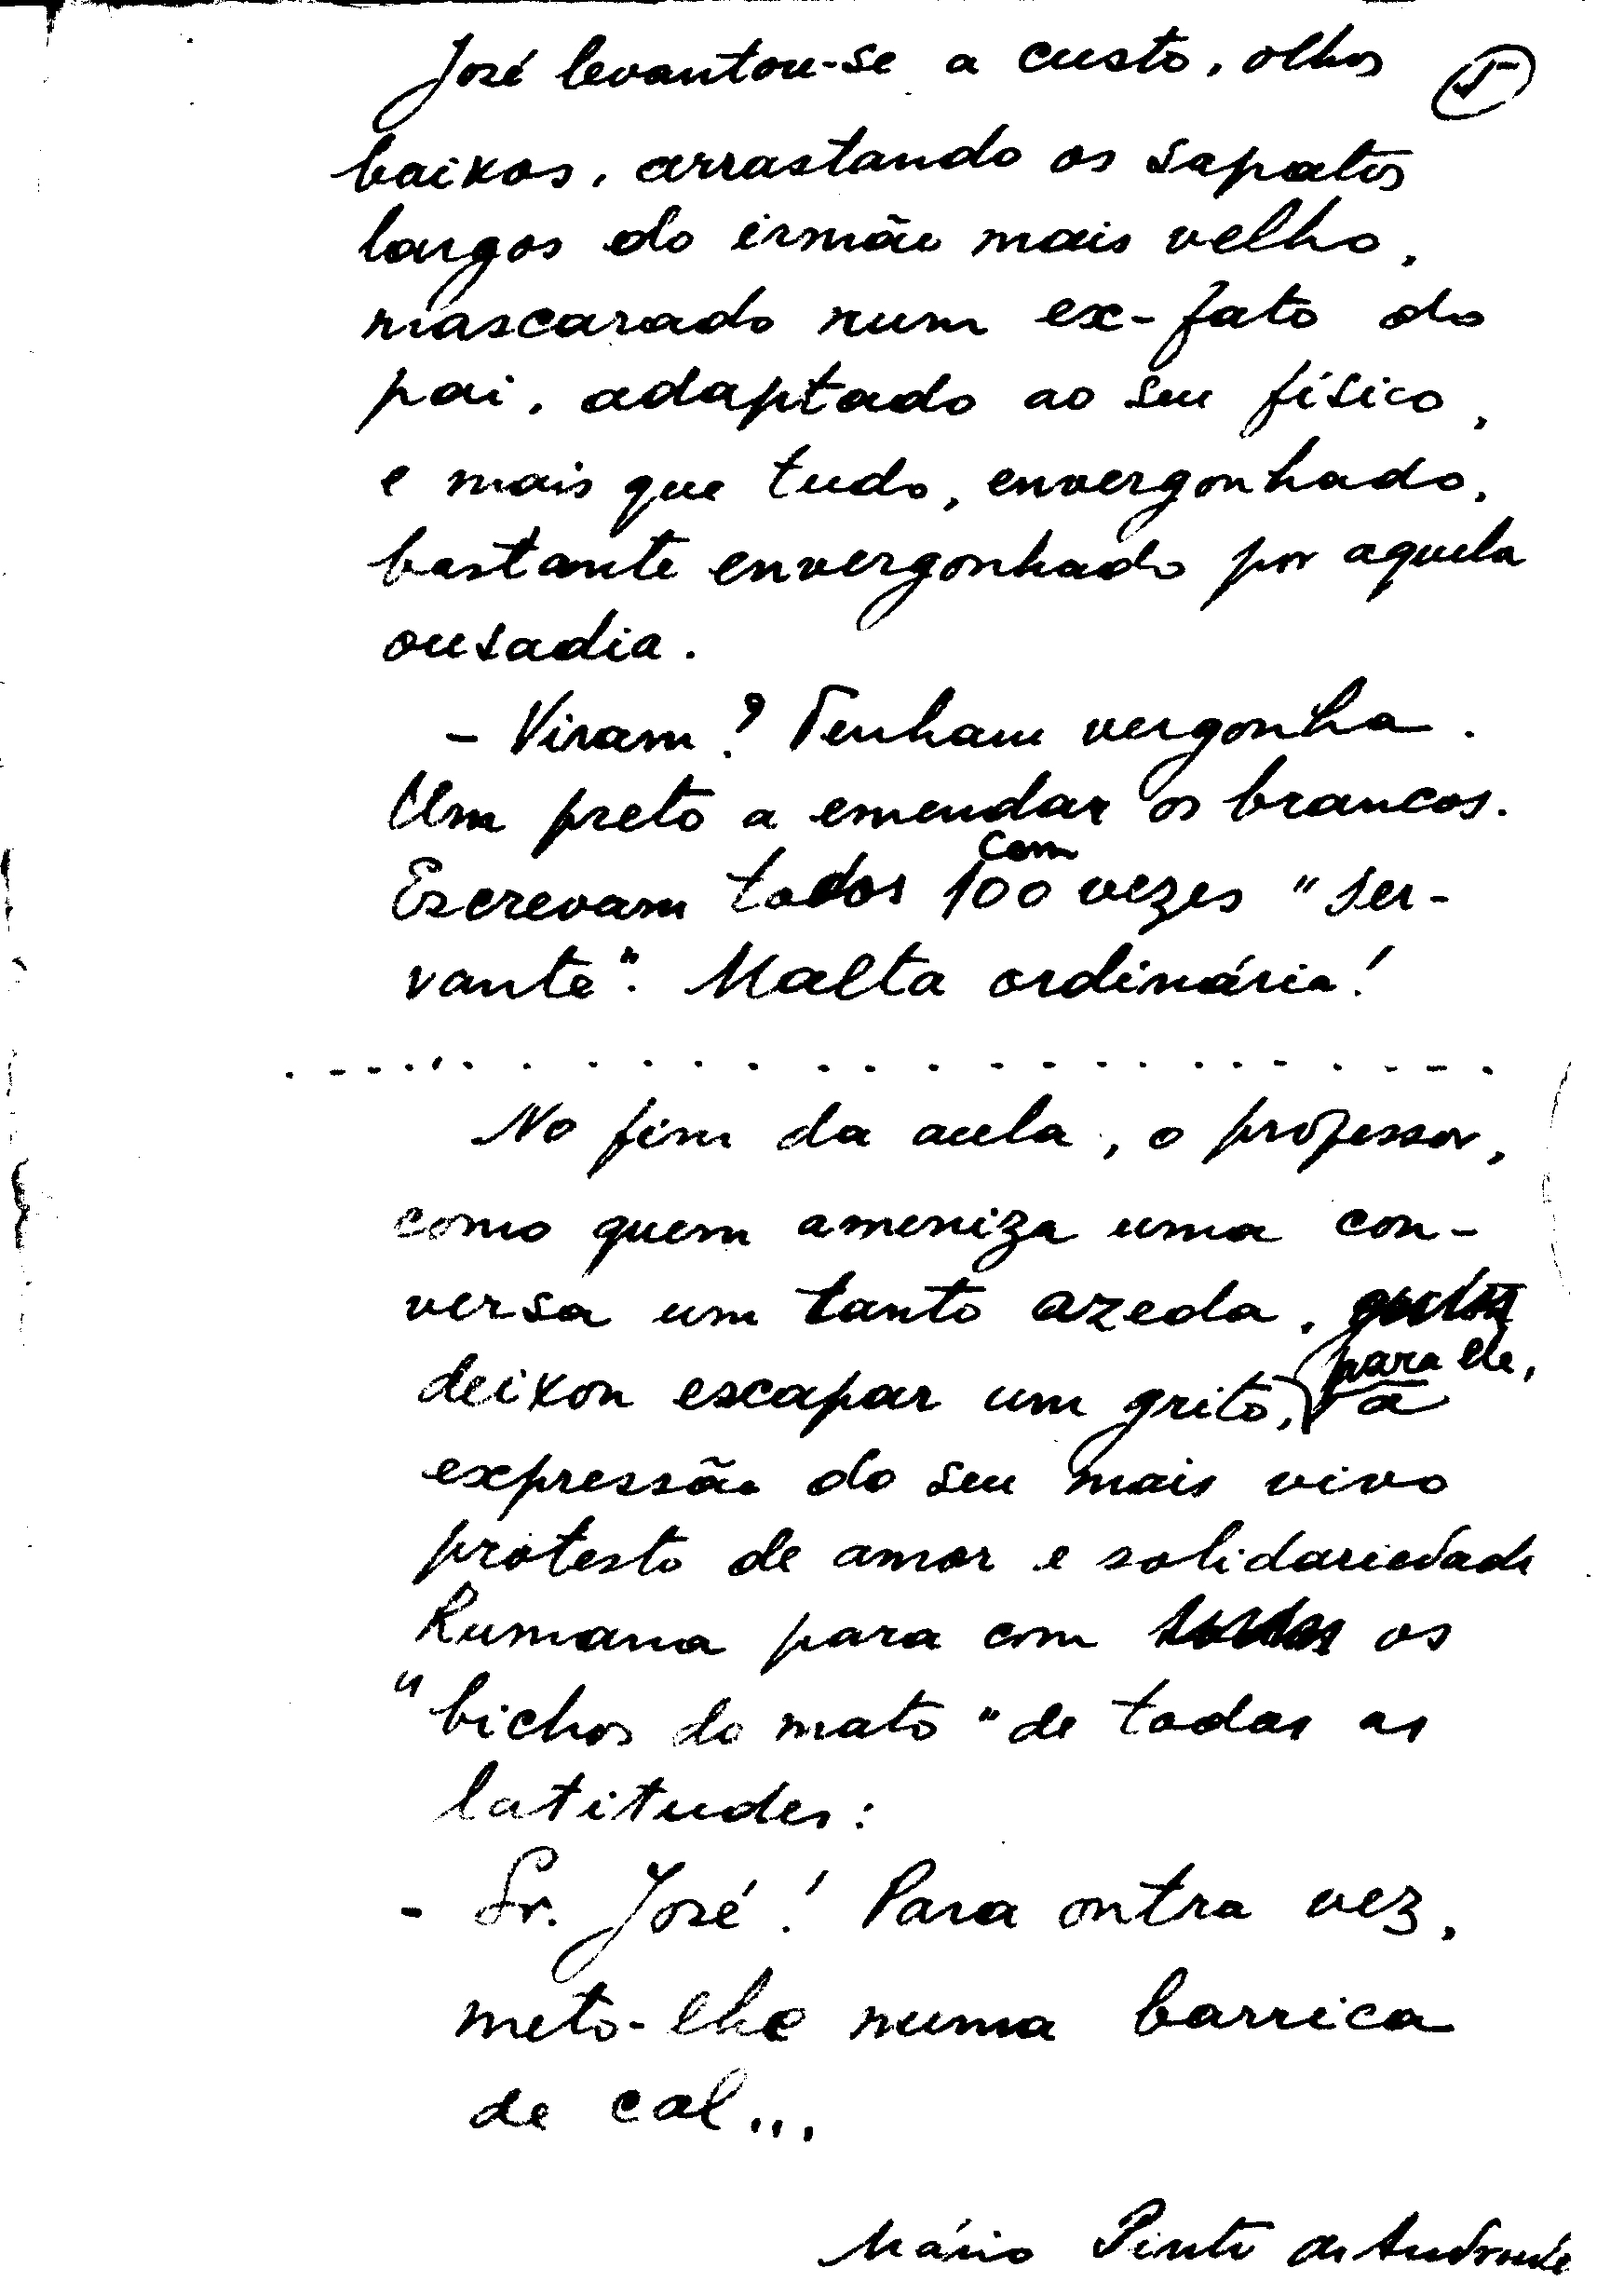 José levantou-se a custo, olhos
5
baixos, arrastando os sapatos
largos do irmão mais velho,
mascarado num ex-fato do
pai, adaptado ao seu físico,
e mais que tudo, envergonhado,
bastante envergonhado por aquela
ousadia.
- Viram? Tenham vergonha.
Um preto a emendar os brancos.
com
Escrevam todos 100 vezes "ser-
vante". Malta ordinária!
. - - - . . . . . . . . . . . . . . . . - - - .
No fim da aula, o professor,
como quem ameniza uma con-
versa um tanto azeda,
para ele,
deixou escapar um grito, a
expressão do seu mais vivo
protesto de amor e solidariedade
humana para com todos os
"bichos do mato" de todas as
latitudes:
- Sr. José! Para outra vez,
meto-lhe numa barrica
de cal...
Mário Pinto de Andrade